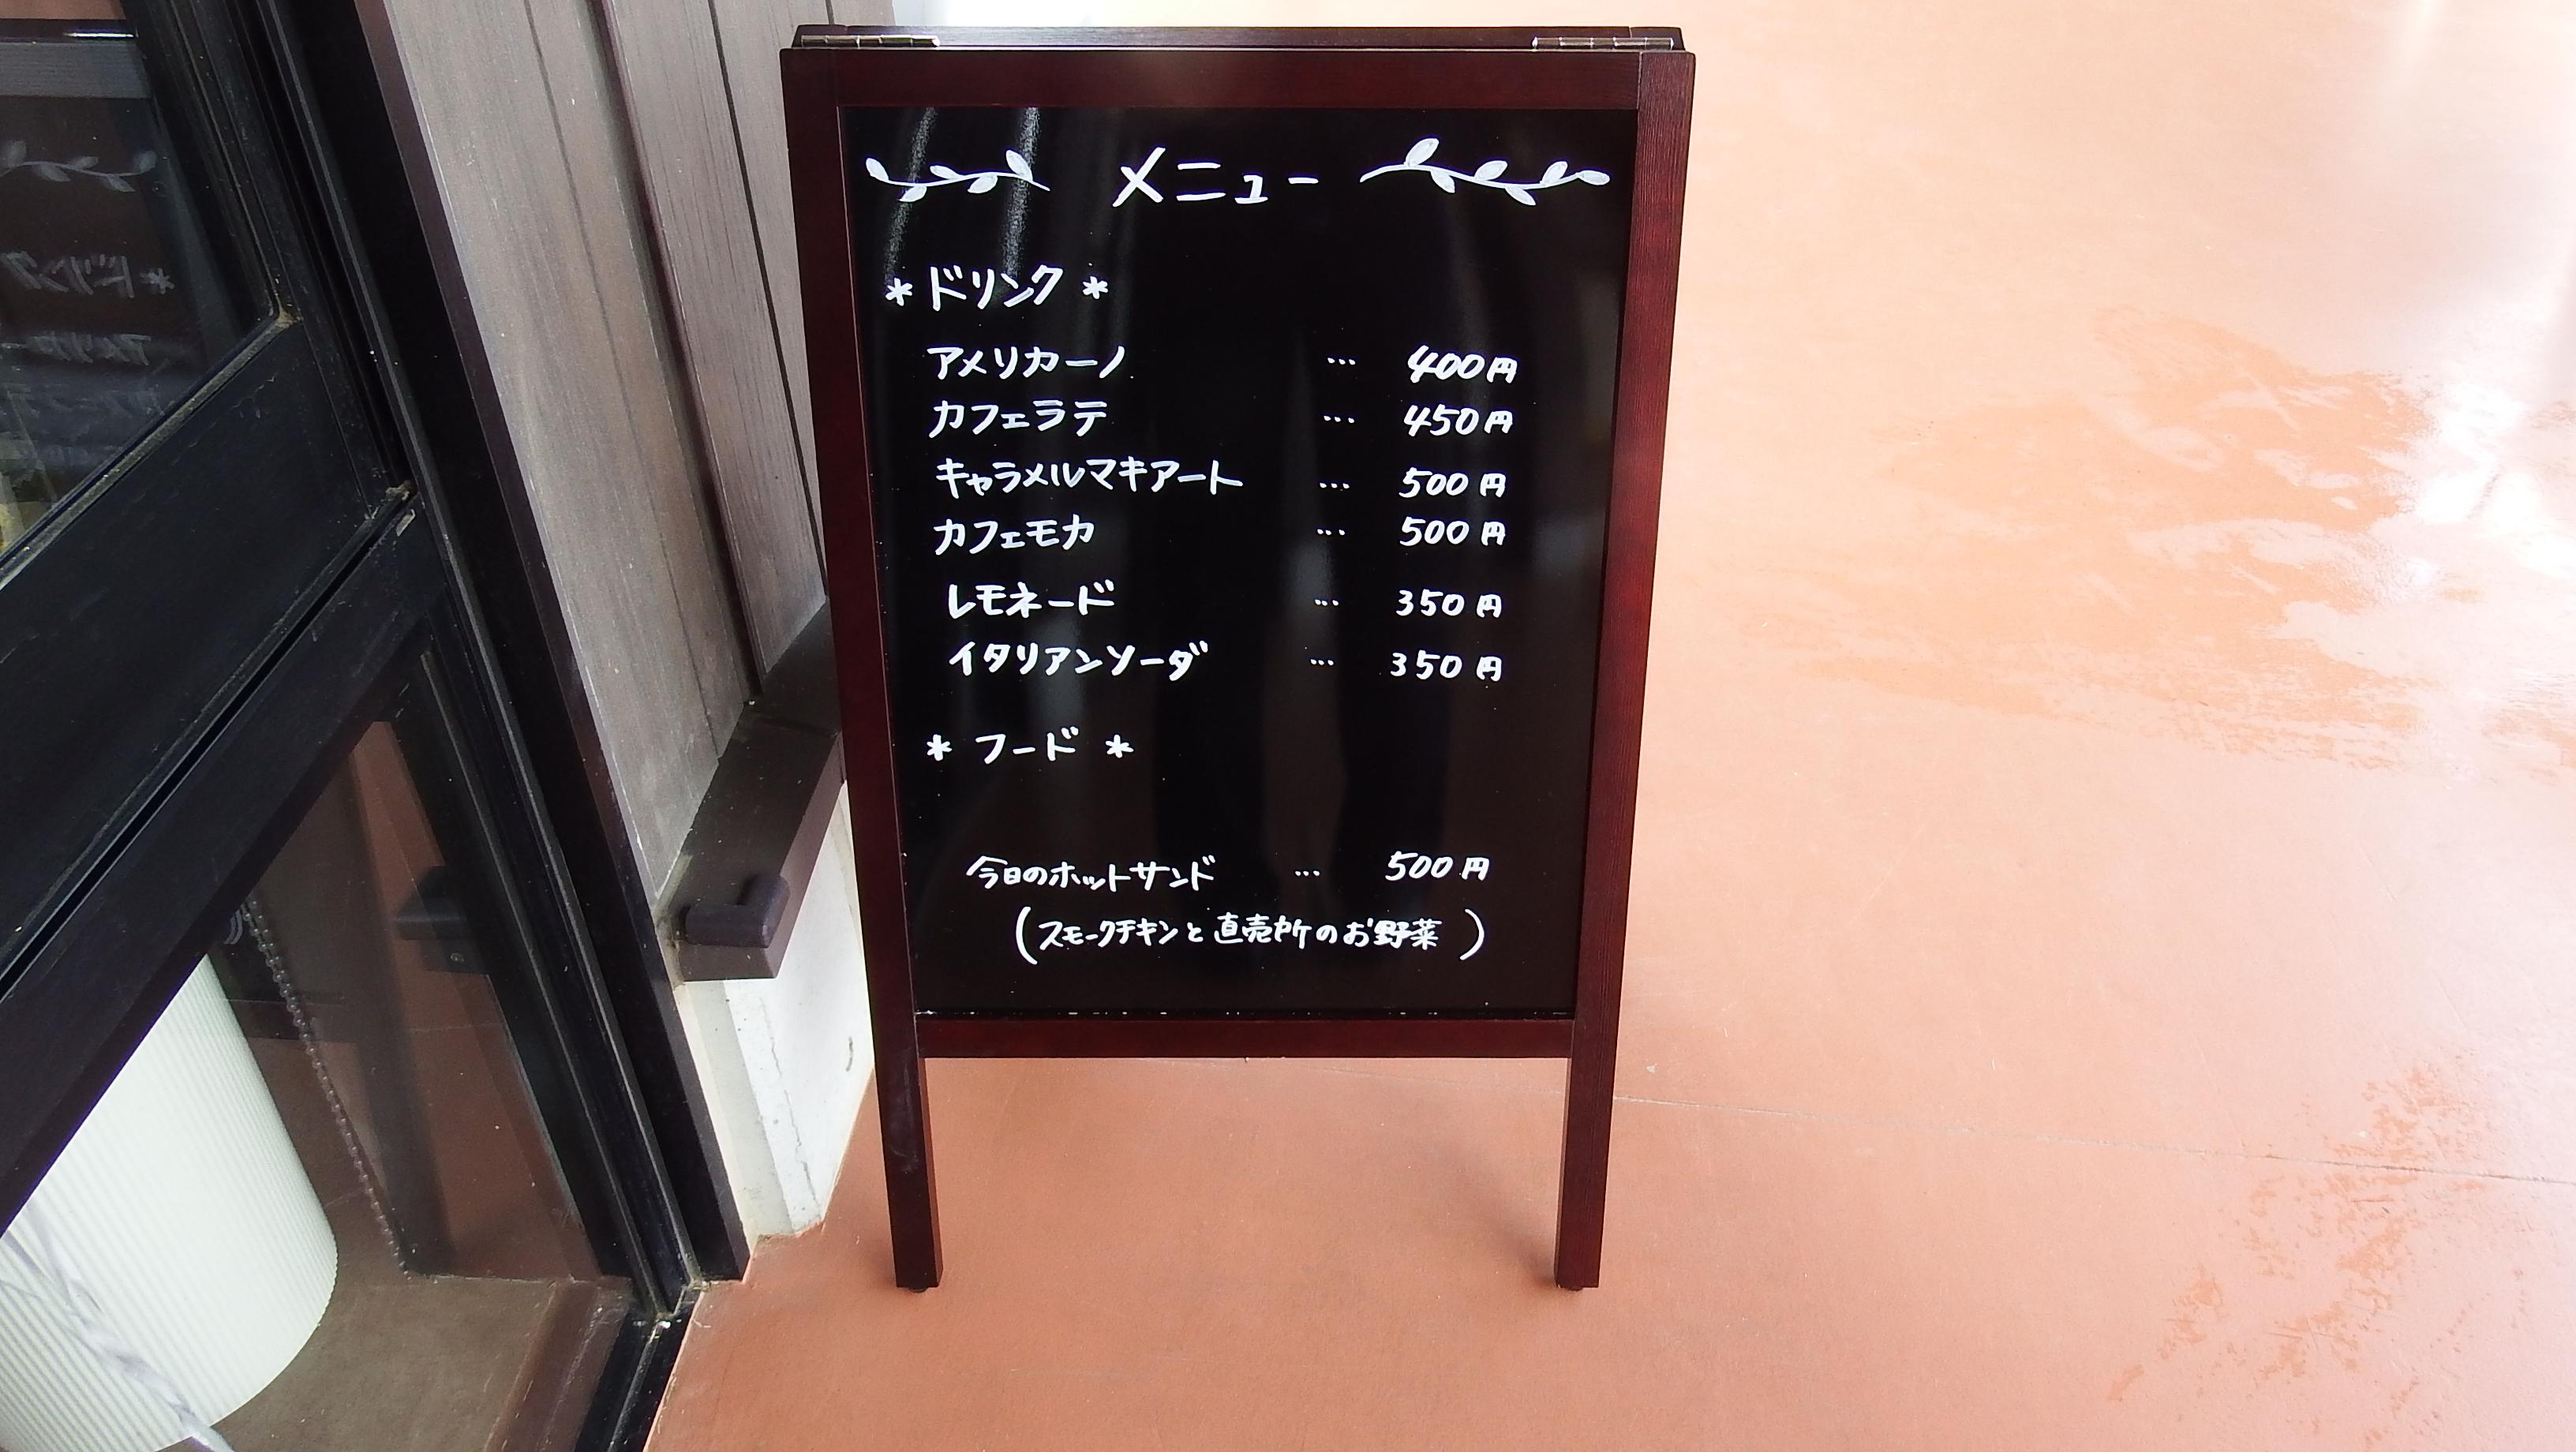 メニュー
* ドリンク *
アメリカーノ ... 400円
カフェラテ ... 450円
キャラメルマキアート ... 500円
カフェモカ ... 500円
レモネード ... 350円
イタリアンソーダ ... 350円
* フード *
今日のホットサンド ... 500円
(スモークチキンと直売所のお野菜)